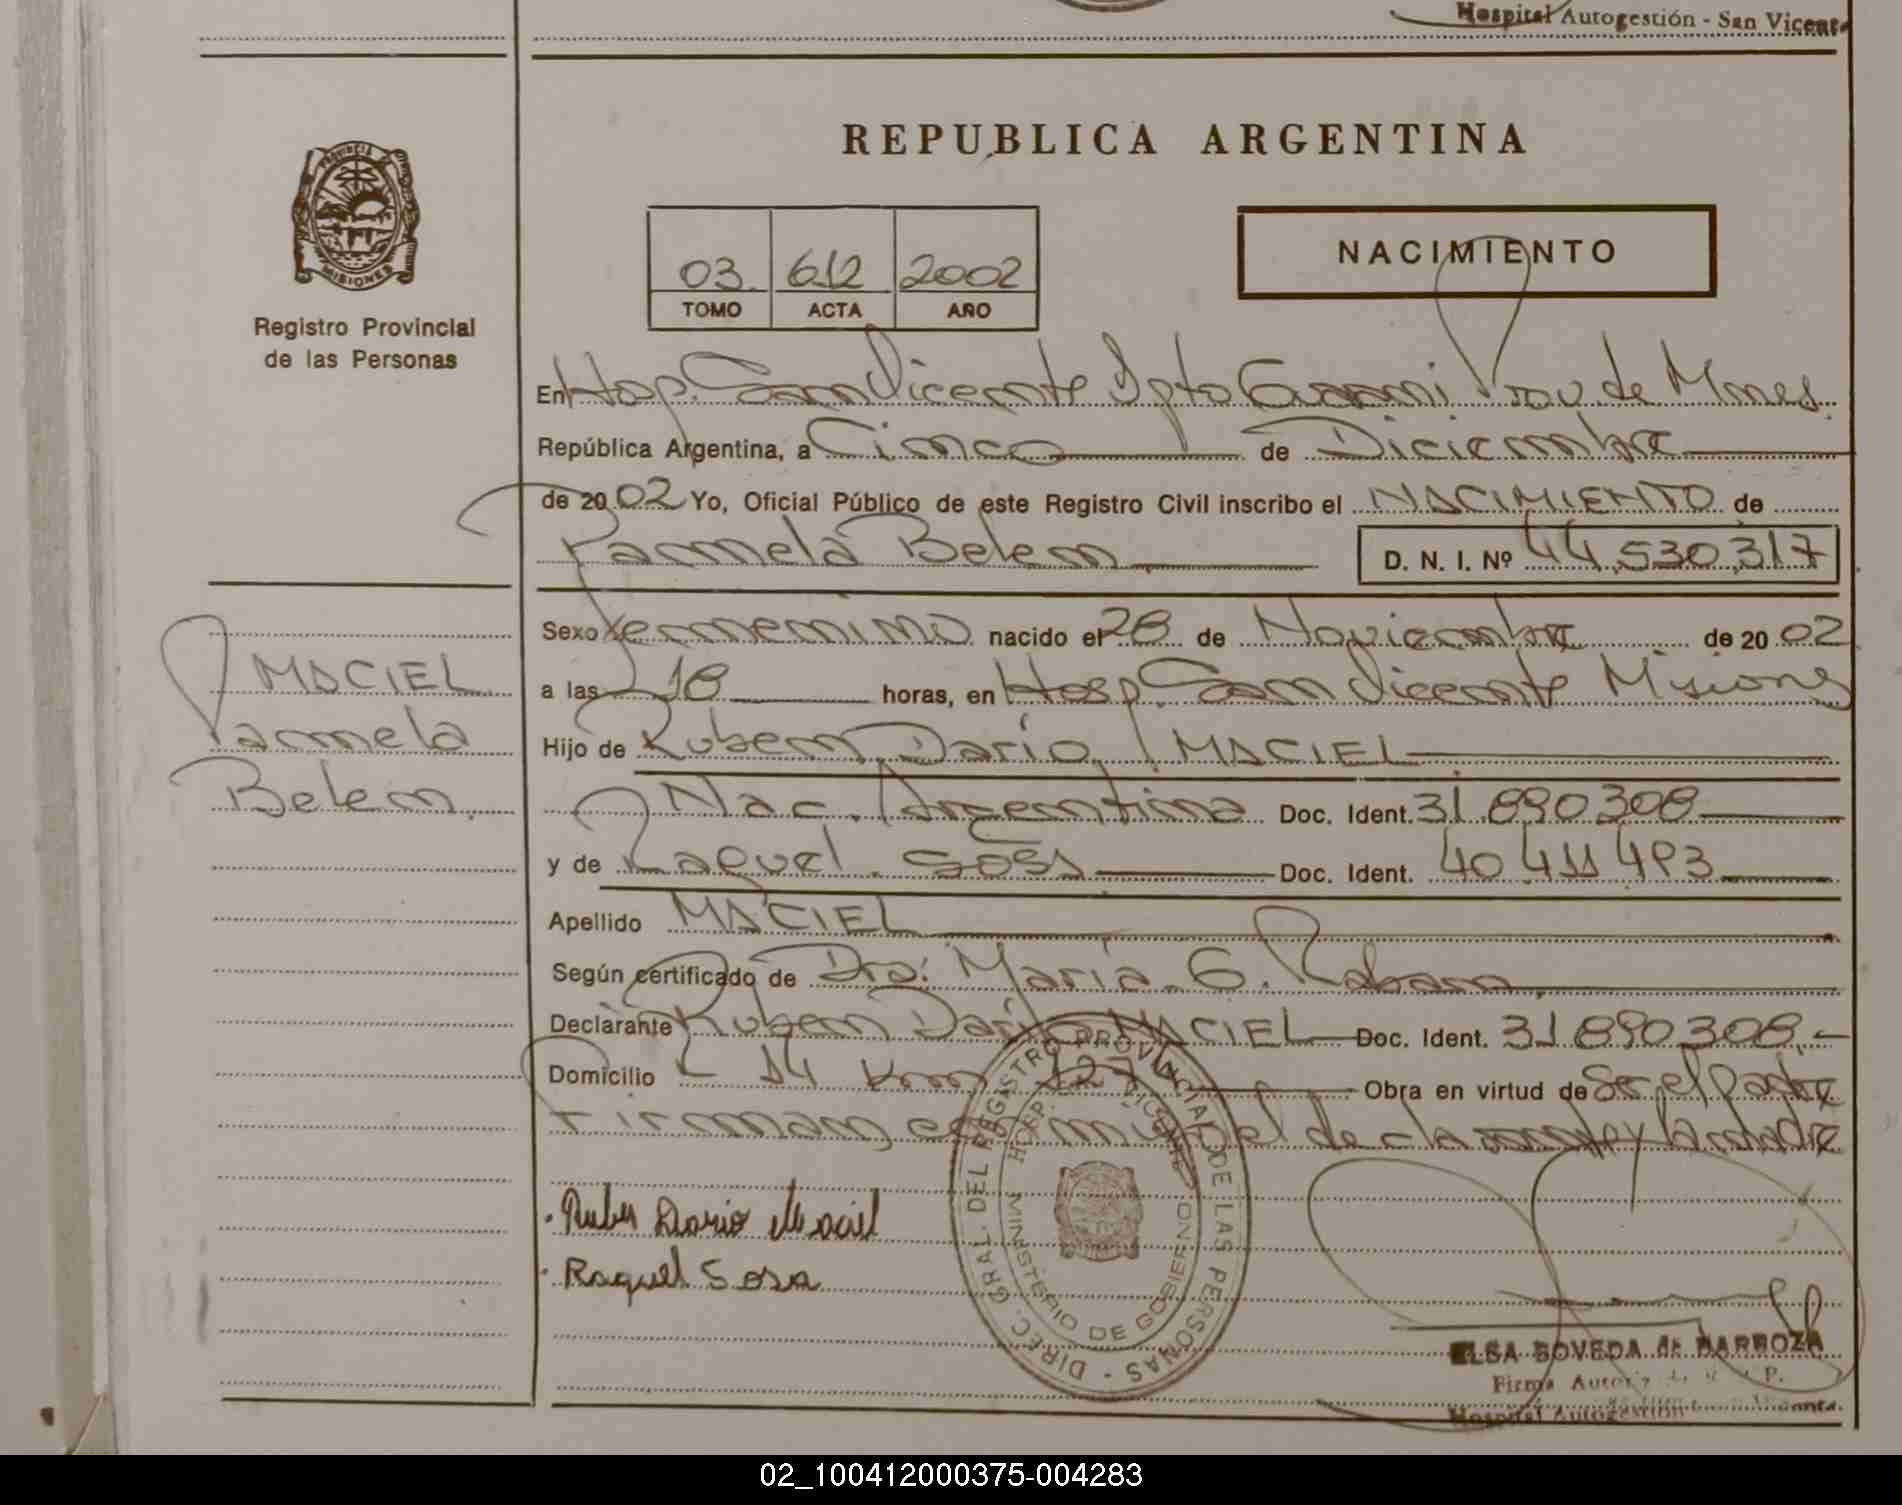 Hospital Autogestión - San Vicente
PROVINCIA DE
MISIONES
Registro Provincial
de las Personas
REPUBLICA ARGENTINA
03. 612 2002
TOMO ACTA AÑO
NACIMIENTO
En Hosp. San Vicente Dpto Guarani Prov de Mnes.
República Argentina, a Cinco de Diciembre
de 2002 Yo, Oficial Público de este Registro Civil inscribo el NACIMIENTO de
Pamela Belem D. N. I. Nº 44.530.317
Sexo Femenino nacido el 28 de Noviembre de 2002
a las 18 horas, en Hosp. San Vicente Misiones
Hijo de Ruben Dario MACIEL
Nac. Argentina Doc. Ident. 31.890.308
y de Raquel Sosa Doc. Ident. 40 411 493
Apellido MACIEL
Según certificado de Dra: Maria G.
Declarante Ruben Dario MACIEL Doc. Ident. 31 890.308.-
Domicilio R 14 Km 1277 Obra en virtud de Ser el Padre
Firman el de cla y la madre
MACIEL
Pamela
Belem.
Ruben Dario Maciel
Raquel Sosa
DIREC. GRAL. DEL REGISTRO PROVINCIAL DE LAS PERSONAS
HOSP. VICENTE
MINISTERIO DE GOBIERNO
ELSA BOVEDA de BARROZA
Firma
Hospital Autogestión
02_100412000375-004283